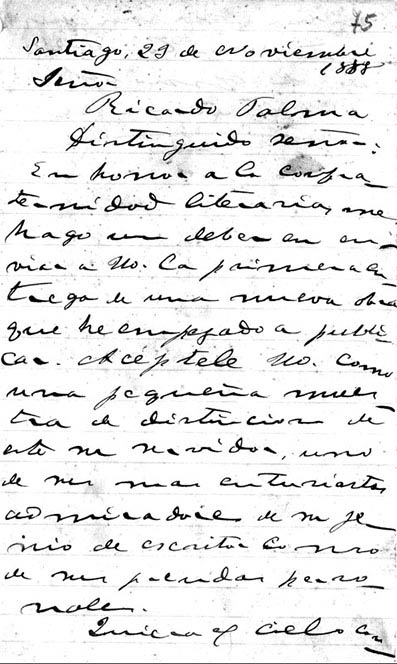 75
Santiago, 29 de Noviembre
1888
Señor
Ricardo Palma
Distinguido señor:
En honor a la confra-
ternidad literaria, me
hago un deber en en
viar a Ud. la primera en
trega de una nueva obra
que he empezado a publi-
car. Acéptele Ud. como
una pequeña mues
tra de distincion de
este su servidor, uno
de sus mas entusiastas
admiradores de su je
nio de escritor como
de sus prendas perso
nales.
Quiera el cielo